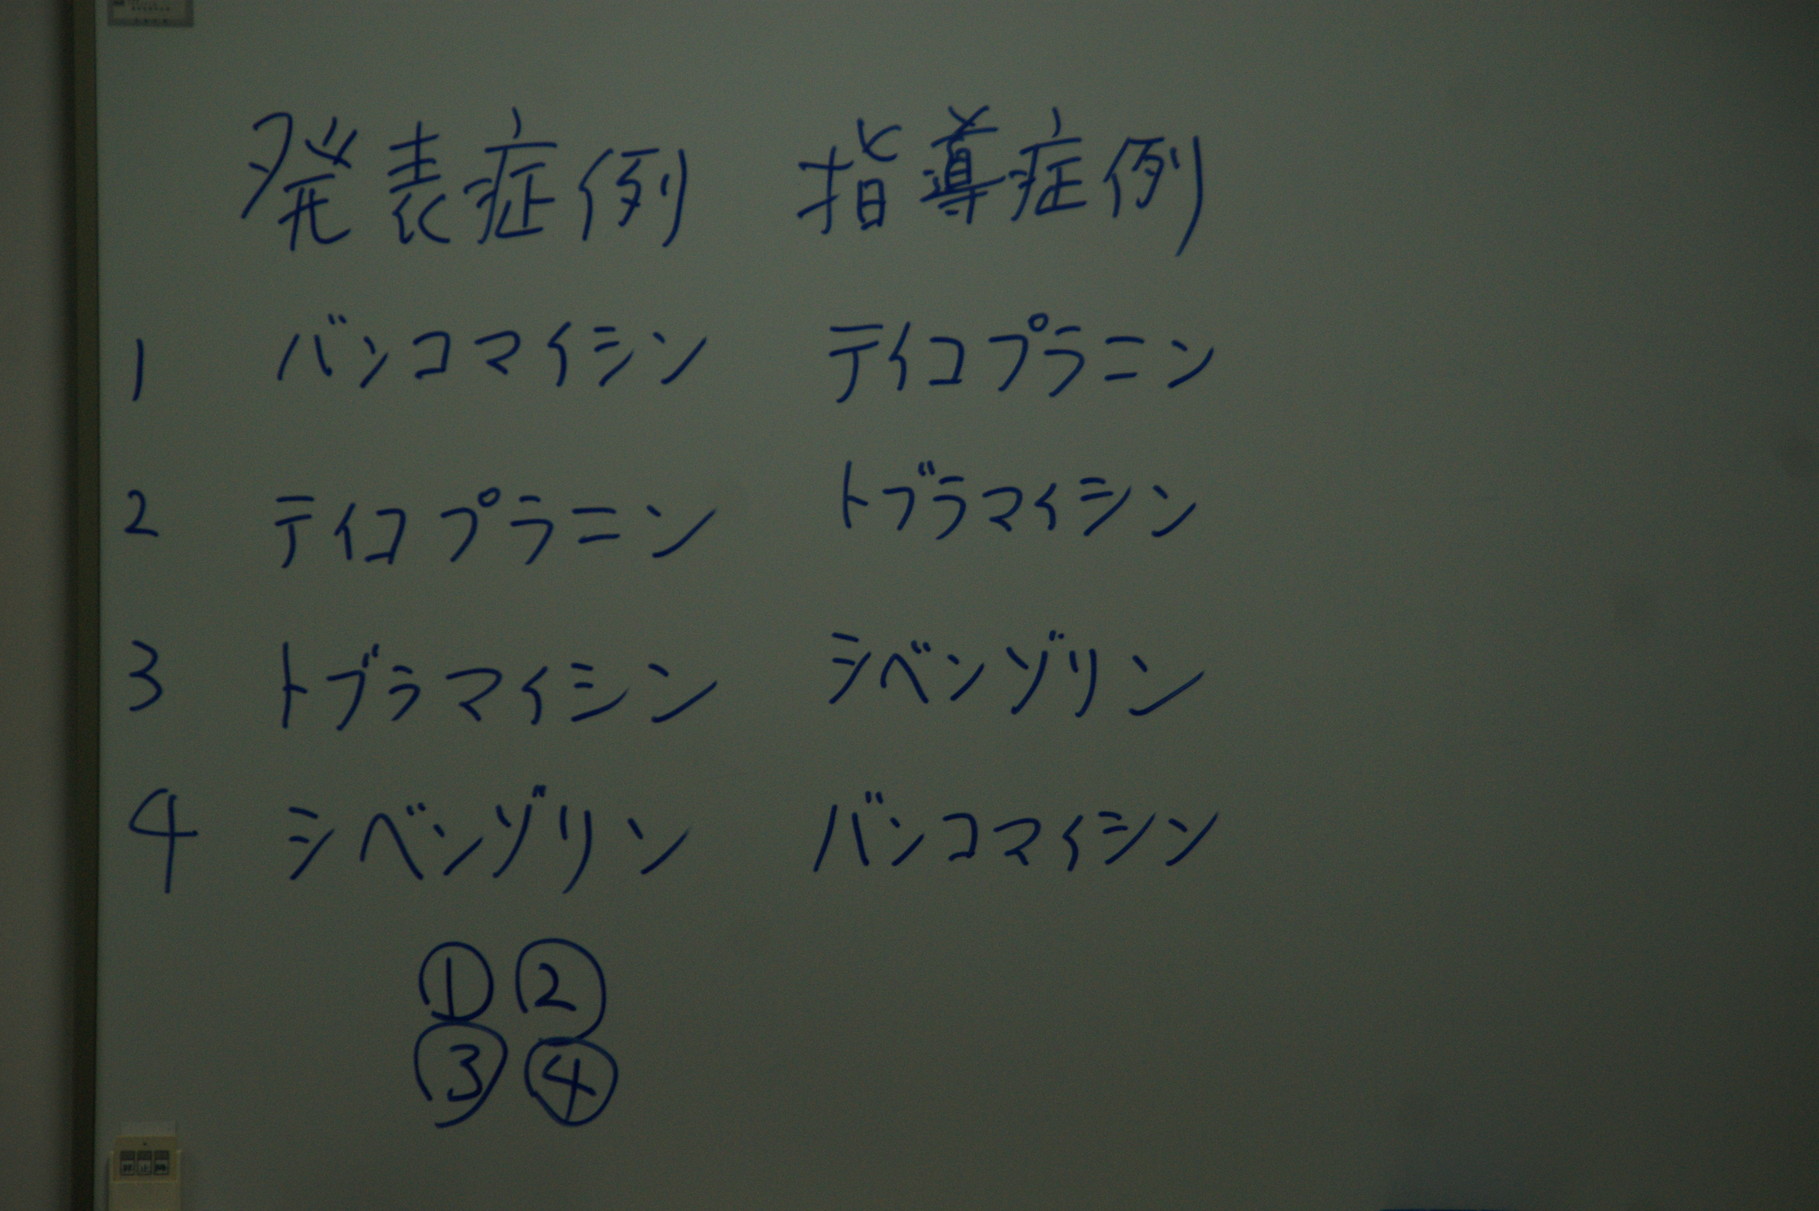 発表症例 指導症例
1 バンコマイシン テイコプラニン
2 テイコプラニン トブラマイシン
3 トブラマイシン シベンゾリン
4 シベンゾリン バンコマイシン
① ②
③ ④